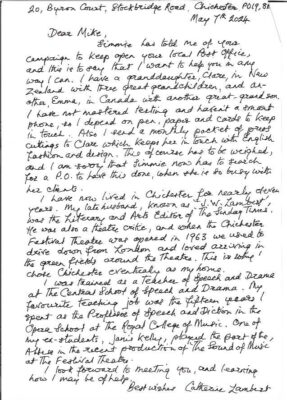 20, Byron Court, Stockbridge Road, Chichester PO19,
May 7th 2024
Dear Mike,
Simmie has told me of your
campaign to keep open your local Post Office,
and this is to say that I want to help you in any
way I can. I have a granddaughter, Clare, in New
Zealand with three great grandchildren, and an-
other, Emma, in Canada with another great grandson.
I have not mastered texting and haven't a smart
phone, so I depend on pen, paper and cards to keep
in touch. Also I send a monthly packet of press
cuttings to Clare which keeps her in touch with English
fashion and design. This of course has to be weighed,
and I am sorry that Simmie now has to search
for a P.O. to have this done, when she is so busy with
her clients.
I have now lived in Chichester for nearly eleven
years. My late husband, known as "J.W. Lambert",
was the Literary and Arts Editor of The Sunday Times.
He was also a theatre critic, and when the Chichester
Festival Theatre was opened in 1963 we used to
drive down from London and loved arriving in
the green fields around the Theatre. This is why I
chose Chichester eventually as my home.
I was trained as a Teacher of Speech and Drama
at The Central School of Speech and Drama. My
favourite teaching job was the fifteen years I
spent as the Professor of Speech and Diction in the
Opera School at the Royal College of Music. One of
my ex-students, Janis Kelly, played the part of the
Abbess in the recent production of The Sound of Music
at the Festival Theatre.
I look forward to meeting you, and learning
how I may be of help.
Best wishes Catherine Lambert